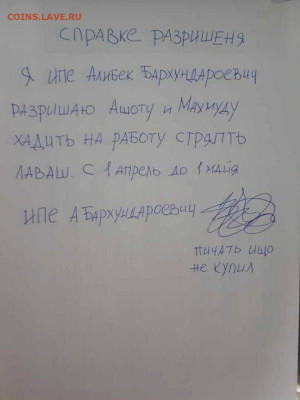 COINS.LAVE.RU
СПРАВКЕ РАЗРИШЕНЯ
Я ИПЕ АЛИБЕК БАРХУНДАРОЕВИЧ
РАЗРИШАЮ АШОТУ И МАХМУДУ
ХАДИТЬ НА РАБОТУ СТРЯПТЬ
ЛАВАШ. С 1 АПРЕЛЬ ДО 1 МАЙЯ
ИПЕ А.БАРХУНДАРОЕВИЧ
ПИЧАТЬ ИЩО
НЕ КУПИЛ